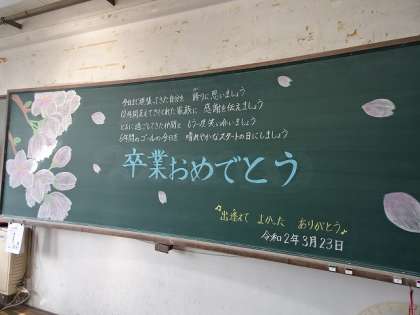 今日まで頑張ってきた自分を 誇りに思いましょう
12年間支えてくれた家族に 感謝を伝えましょう
ともに過ごしてきた仲間と もう一度笑い合いましょう
6年間のゴールの今日を 晴れやかなスタートの日にしましょう
卒業おめでとう
出逢えて よかった ありがとう♪
令和2年3月23日